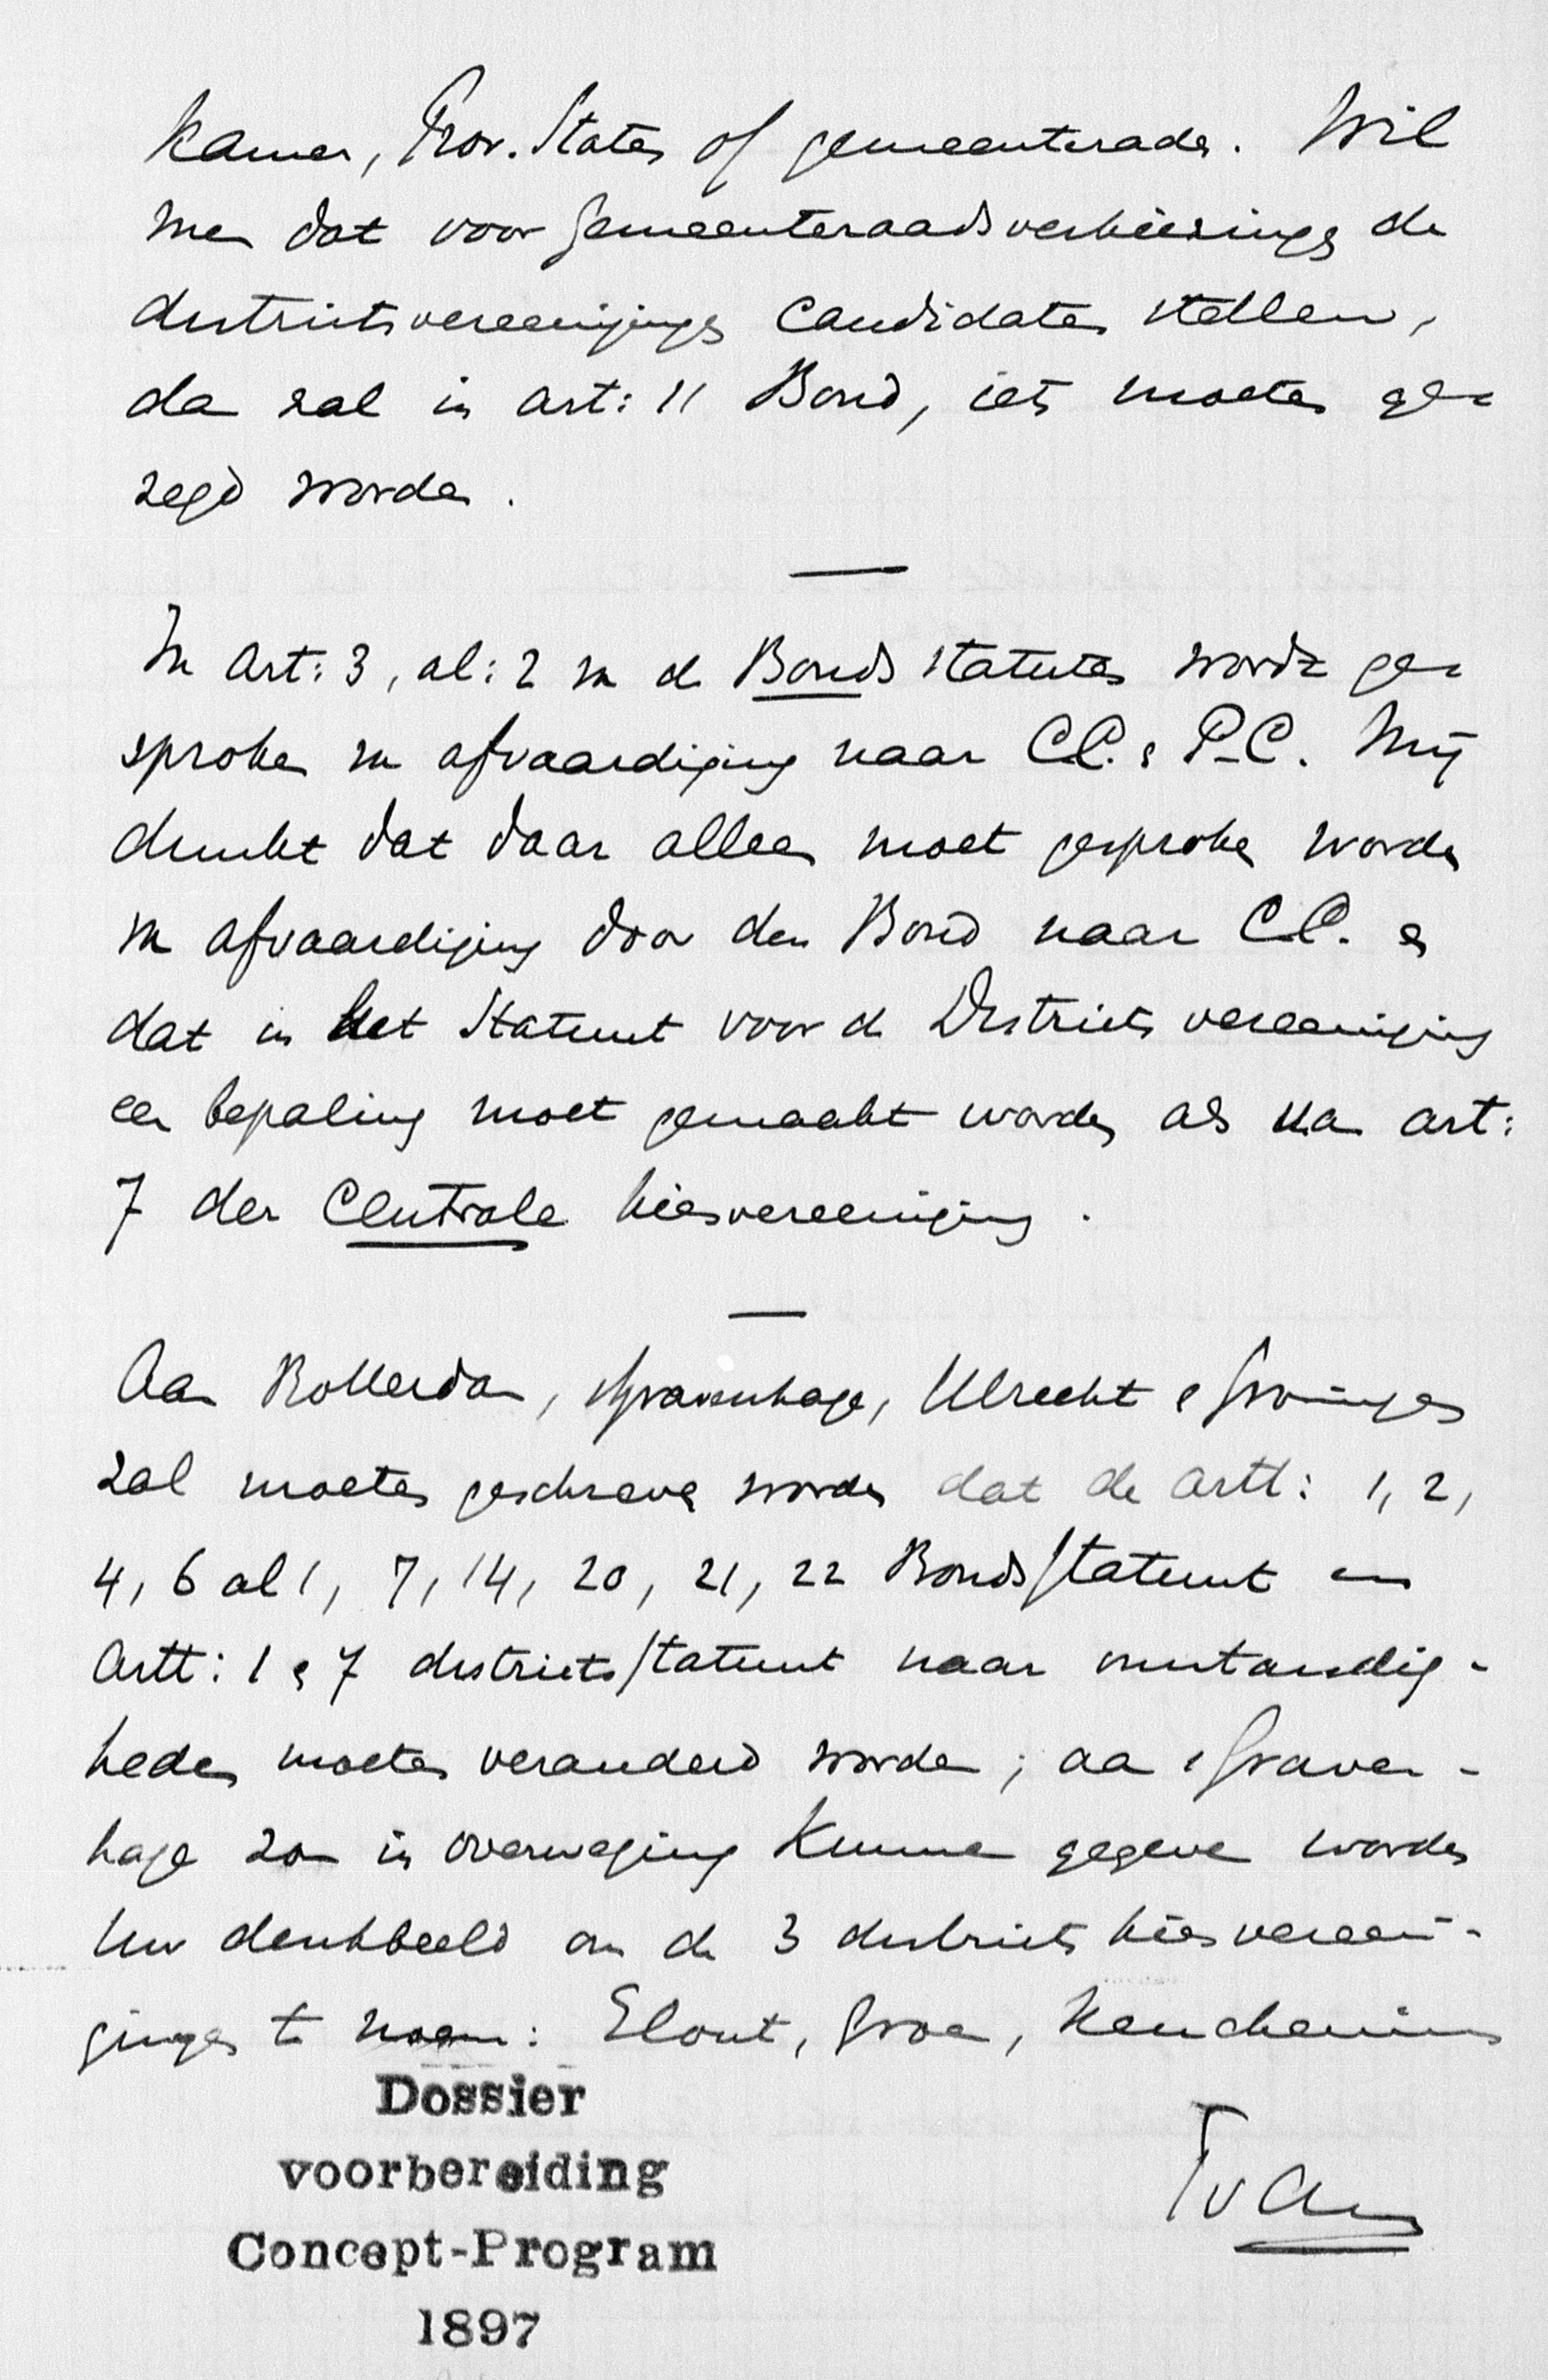 Kamer, Prov. Staten of gemeenteraden. Wil
men dat voor Gemeenteraadsverkiezingen de
districtsvereenigingen candidaten stellen,
dan zal in art: 11 Bond, iets moeten ge-
zegd worden.
—
In art: 3, al: 2 van de Bondsstatuten wordt ge-
sproken van afvaardiging naar C.C. & P.C. Mij
dunkt dat daar alleen moet gesproken worden
van afvaardiging door den Bond naar C.C. en
dat in het Statuut voor de Districtsvereeniging
een bepaling moet gemaakt worden als van art:
7 der Centrale kiesvereeniging.
—
Aan Rotterdam, 'sGravenhage, Utrecht & Groningen
zal moeten geschreven worden dat de artt: 1, 2,
4, 6 al 1, 7, 14, 20, 21, 22 Bondsstatuut en
Artt: 1 & 7 districtsstatuut naar omstandig-
heden moeten veranderd worden; aan 'sGraven-
hage zou in overweging kunnen gegeven worden
Uw denkbeeld om de 3 districts kiesvereeni-
gingen te noemen: Elout, Groen, Keuchenius
Dossier
voorbereiding
Concept-Program
1897